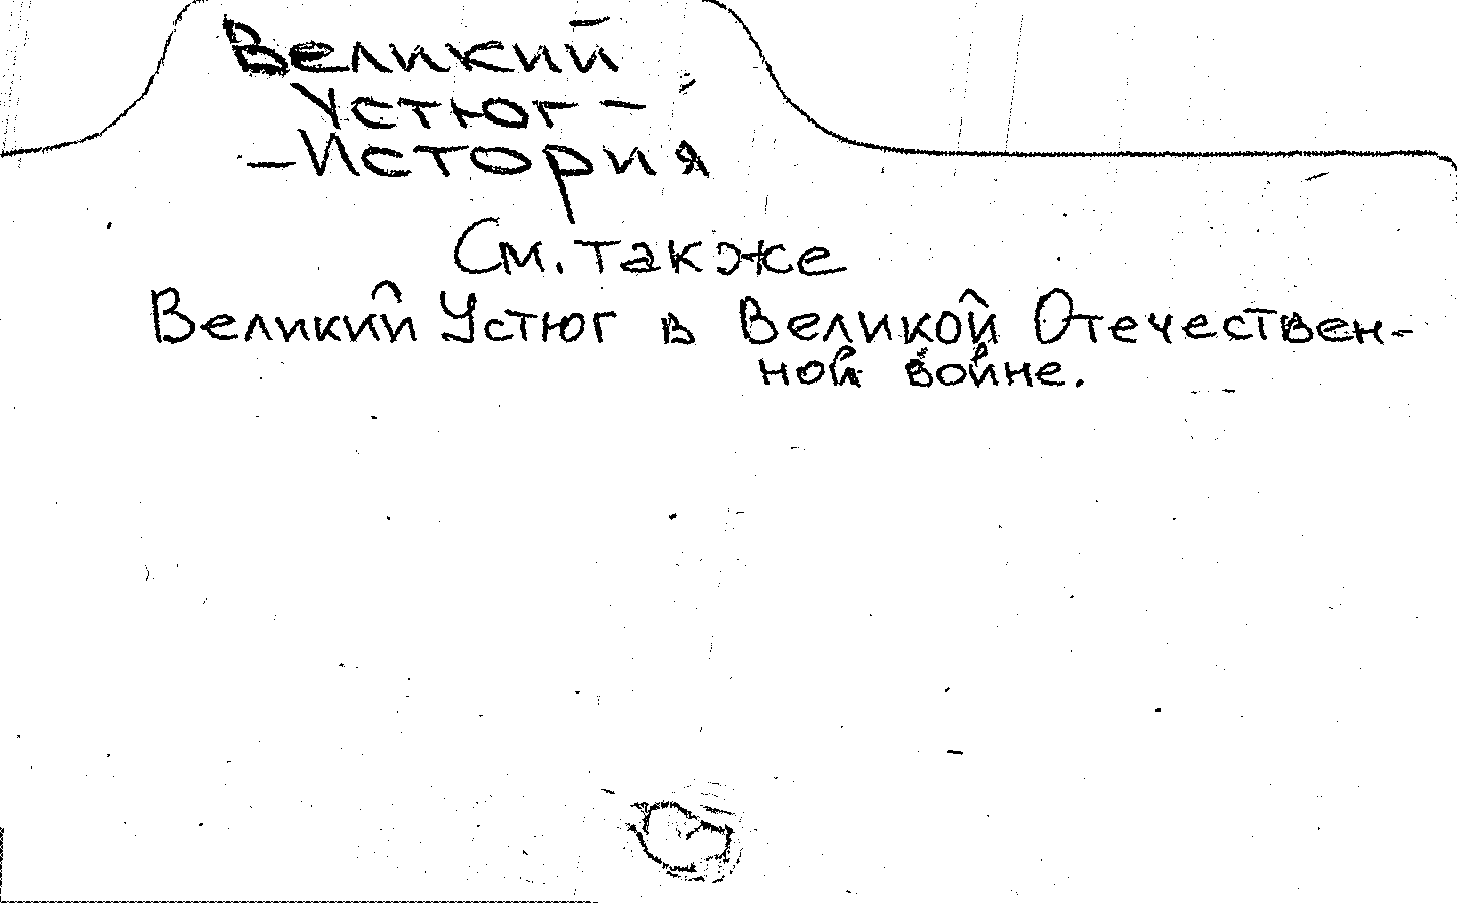 Великий
Устюг -
- История
См. также
Великий Устюг в Великой Отечествен-
ной войне.